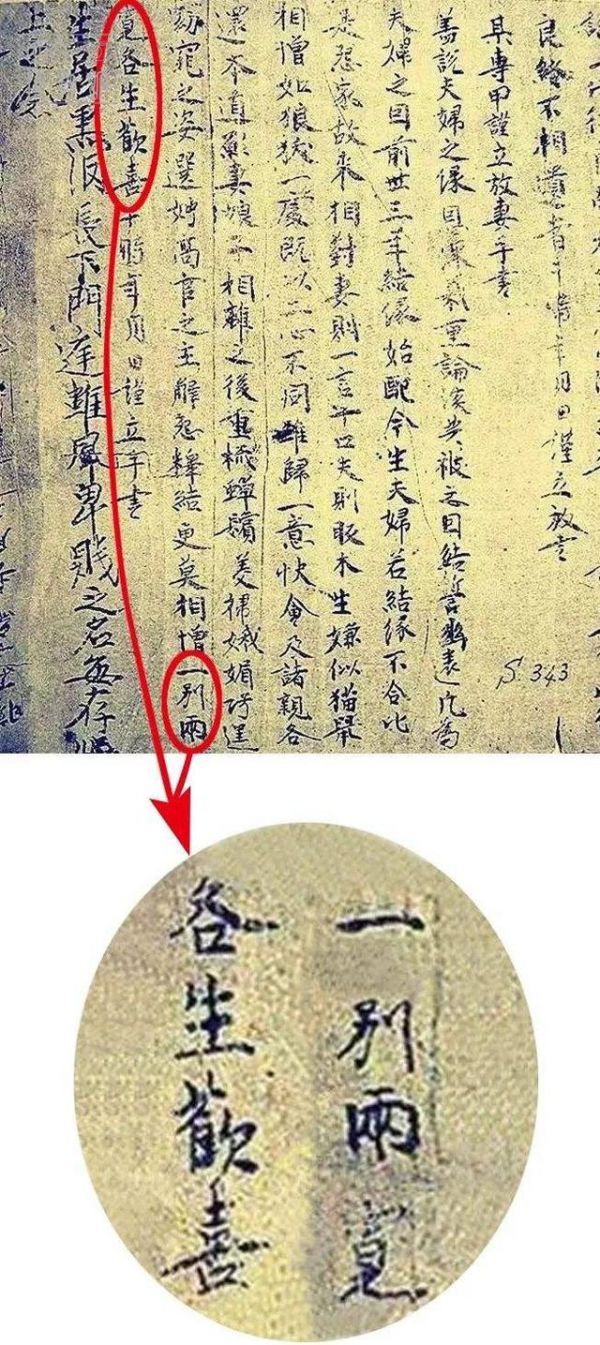 良緣不相 者于 年月日謹立放書
某專甲謹立放妻手書
蓋說夫婦之緣恩深義重論談共被之因結誓幽遠凡為
夫婦之因前世三年結緣始配今生夫婦若結緣不合比
是怨家故來相對妻則一言十口夫則販木生嫌似猫鼠
相憎如狼犺一處既以二心不同難歸一意快會及諸親各
還本道願妻娘子相離之後重梳蟬鬢美掃娥媚巧逞
窈窕之姿選娉高官之主解怨釋結更莫相憎一別兩
寬各生歡喜于時年月日謹立手書
門庭雖 卑賤之名每存
上之
S.343
一別兩寬
各生歡喜